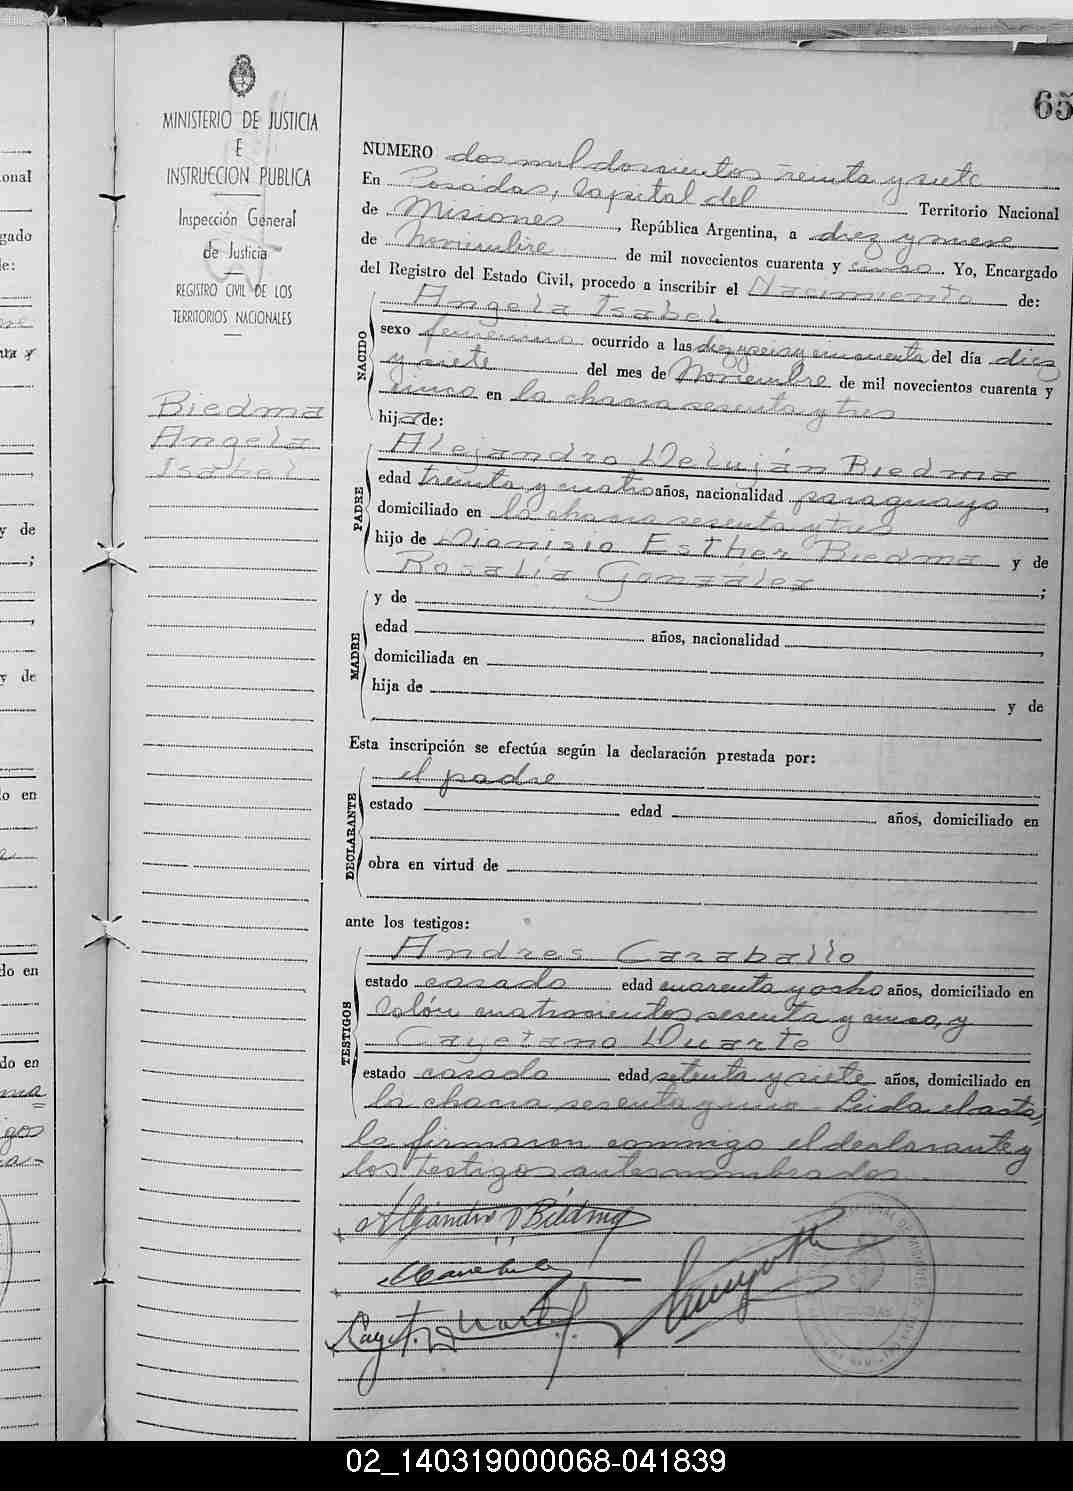 65
MINISTERIO DE JUSTICIA
E
INSTRUCCION PUBLICA
Inspección General
de Justicia
REGISTRO CIVIL DE LOS
TERRITORIOS NACIONALES
Biedma
Angela
Isabel
NUMERO dos mil doscientos treinta y siete
En Posadas, Capital del Territorio Nacional
de Misiones, República Argentina, a diez y nueve
de Noviembre de mil novecientos cuarenta y cinco. Yo, Encargado
del Registro del Estado Civil, procedo a inscribir el Nacimiento de:
NACIDO
Angela Isabel
sexo femenino ocurrido a las diez y seis y cincuenta del día diez
y siete del mes de Noviembre de mil novecientos cuarenta y
cinco en la chacra sesenta y tres
hija de:
PADRE
Alejandro Deluján Biedma
edad treinta y cuatro años, nacionalidad paraguayo,
domiciliado en la chacra sesenta y tres
hijo de Dionisio Esther Biedma y de
Rosalía González;
MADRE
y de
edad años, nacionalidad ,
domiciliada en
hija de y de
Esta inscripción se efectúa según la declaración prestada por:
DECLARANTE
el padre
estado edad años, domiciliado en
obra en virtud de
ante los testigos:
TESTIGOS
Andres Caraballo
estado casado edad cuarenta y ocho años, domiciliado en
Colón cuatrocientos sesenta y cinco, y
Cayetano Duarte
estado casado edad setenta y siete años, domiciliado en
la chacra sesenta y uno. Leida el acta,
la firmaron conmigo el declarante y
los testigos antes nombrados.
Alejandro D Biedma
02_140319000068-041839